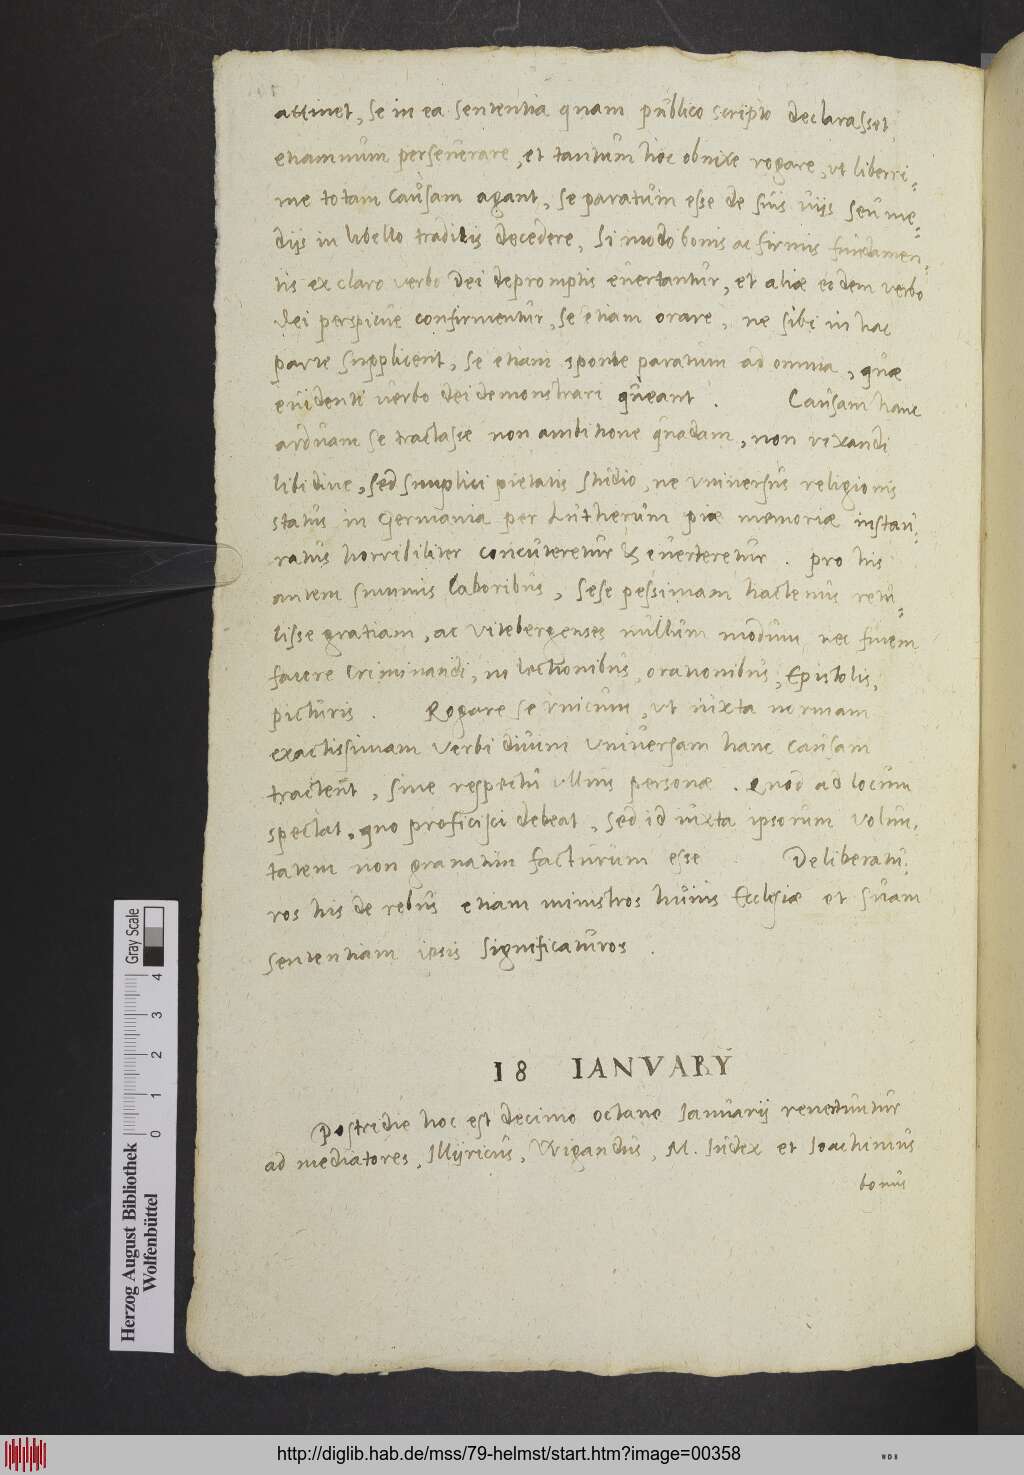 attinet, se in ea sententia quam publico scripto declarasset
etiamnum perseuerare, et tantum hoc obnixe rogare, ut liberri=
me totam causam agant, se paratum esse de suis uijs seu me=
dijs in libello traditis decedere, si modo bonis ac firmis fundamen=
tis ex claro verbo Dei depromptis euertantur, et aliæ eodem verbo
Dei perspicue confirmentur, se etiam orare, ne sibi in hac
parte supplicent, se etiam sponte paratum ad omnia, quæ
euidenti uerbo dei demonstrari queant. Causam hanc
arduam se tractasse non ambitione quadam, non rixandi
libidine, sed simplici pietatis studio, ne vniuersus religionis
status in Germania per Lutherum piæ memoriæ instau=
ratus horribiliter concuteretur & euerteretur. pro his
autem summis laboribus, sese pessimam hactenus retu=
lisse gratiam, ac Vitebergenses nullum modum nec finem
facere criminandi, in lectionibus, orationibus, Epistolis,
picturis. Rogare se vnicum, ut iuxta normam
exactissimam verbi diuini vniuersam hanc causam
tractent, sine respectu vllius personæ. Quod ad locum
spectat, quo proficisci debeat, sed id iuxta ipsorum volun=
tatem non grauatim facturum esse. Deliberatu=
ros his de rebus etiam ministros huius Ecclesiæ et suam
sententiam ipsis significaturos.
18 IANVARY
Postridie hoc est decimo octauo Ianuarij reuertuntur
ad mediatores, Illyricus, Wigandus, M. Iudex et Ioachimus
bonus
Gray Scale
0 1 2 3 4
Herzog August Bibliothek
Wolfenbüttel
http://diglib.hab.de/mss/79-helmst/start.htm?image=00358
WDB